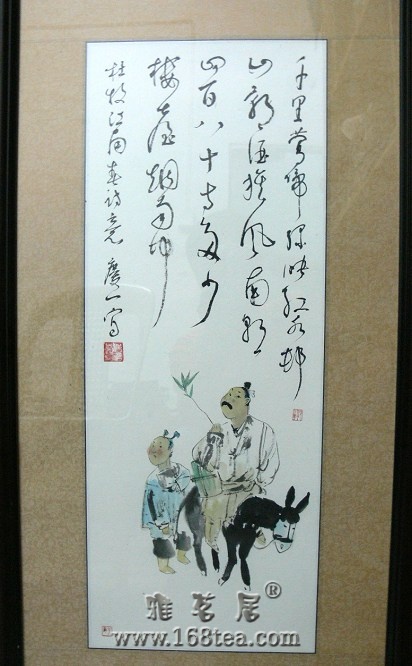 千里莺啼绿映红水村
山郭酒旗风南朝
四百八十寺多少
楼台烟雨中
杜牧江南春诗意
雅茗居®
www.168tea.com